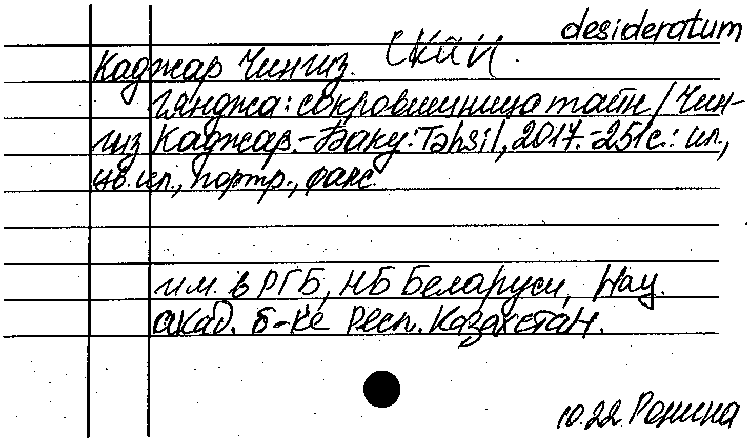 desideratum
Каджар Чингиз. Скан.
Гянджа: сокровищница тайн / Чин-
гиз Каджар. - Баку: Təhsil, 2017. - 251 с.: ил.,
цв. ил., портр., факс.
им. в РГБ, НБ Беларуси, Нау.
акад. б-ке Респ. Казахстан.
10.22. Ронина